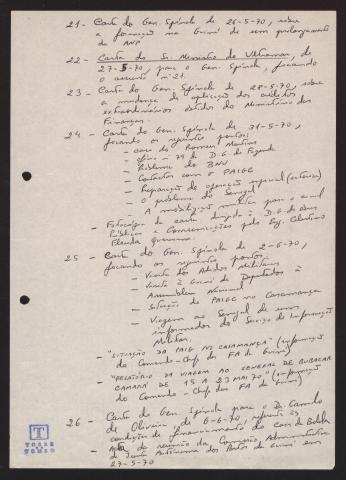 21 - Carta do Gen. Spínola de 26-5-70, sobre
a formação na Guiné de um prolongamento
da ANP
22 - Carta do Sr. Ministro do Ultramar, de
27-5-70, para o Gen. Spínola, focando
o assunto nº 21.
23 - Carta do Gen. Spínola de 28-5-70, sobre
a mudança de aplicação dos créditos
extraordinários obtidos do Ministério das
Finanças.
24 - Carta do Gen. Spínola de 31-5-70,
focando os seguintes pontos:
- caso do Romeu Martins
- ofício - 79 da D. G. de Fazenda
- Problema do BNU
- Contactos com o PAIGC
- Preparação de operação especial
- O problema do Senegal
- A mobilização militar para o
- Fotocópia da carta dirigida à D. G. de Obras
Públicas e Comunicações pelo Eng. Celestino
25 - Carta do Gen. Spínola de 2-6-70,
focando os seguintes pontos:
- Visita dos Adidos Militares
- Visita à Guiné de Deputados à
Assembleia Nacional
- Situação do PAIGC no Casamança
- Viagem ao Senegal de um
informador do Serviço de Informação
Militar.
- "SITUAÇÃO DO PAIGC NO CASAMANÇA" (informação
do Comando-Chefe das FA da Guiné)
- "RELATÓRIO DA VIAGEM AO SENEGAL DE BUBACAR
CAMARÁ DE 15 A 23 MAI 70" (informação
do Comando-Chefe das FA da Guiné)
26 - Carta do Gen. Spínola para o Dr. Camilo
de Oliveira de 6-6-70, referente às
condições de financiamento do cais de Bolola
- Acta da reunião da Comissão Administrativa
da Junta Autónoma dos Portos da Guiné em
27-5-70
T
TORRE
DO
TOMBO